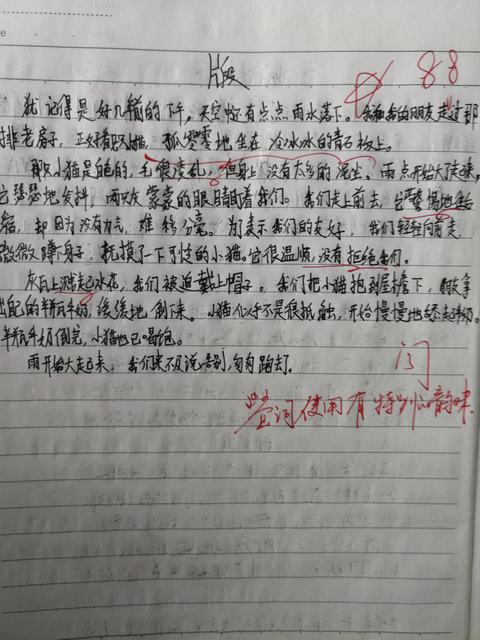 片段
88
犹记得是好几年前的下午。天空中有点点雨水落下。我和我的朋友走过那
排老房子,正好看见只小猫,孤零零地坐在冷冰冰的青石板上。
那只小猫是白色的,毛很凌乱,但身上没有太多的泥尘。雨点开始大了起来,
它瑟瑟地发抖,两只灰蒙蒙的眼睛盯着我们。我们走上前去,它警惕地向后
缩,却因为没有力气,难移分毫。为表示我们的友好,我们轻轻向前走,
微微蹲下身子,抚摸了一下可怜的小猫。它很温顺,没有拒绝我们。
灰瓦上溅起水花,我们被迫戴上帽子。我们把小猫抱到屋檐下,
的半瓶牛奶,缓缓地倒下来。小猫似乎不是很抵触,开始慢慢地舔起牛奶。
半瓶牛奶倒完,小猫也已喝饱。
雨开始大起来,我们来不及说告别,匆匆跑去。
叠词使用有特别的韵味.